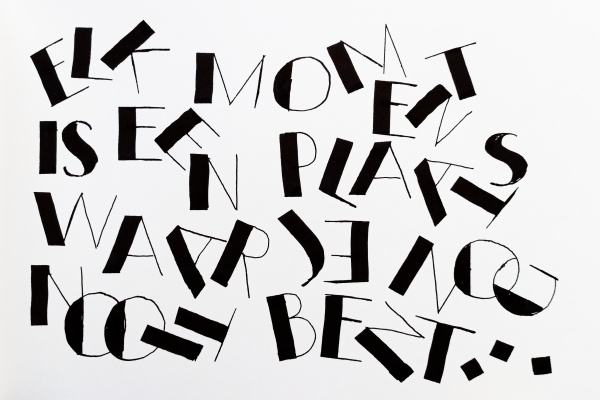 ELK MOMENT
IS EEN PLAATS
WAAR JE NOG
NOOIT BENT...